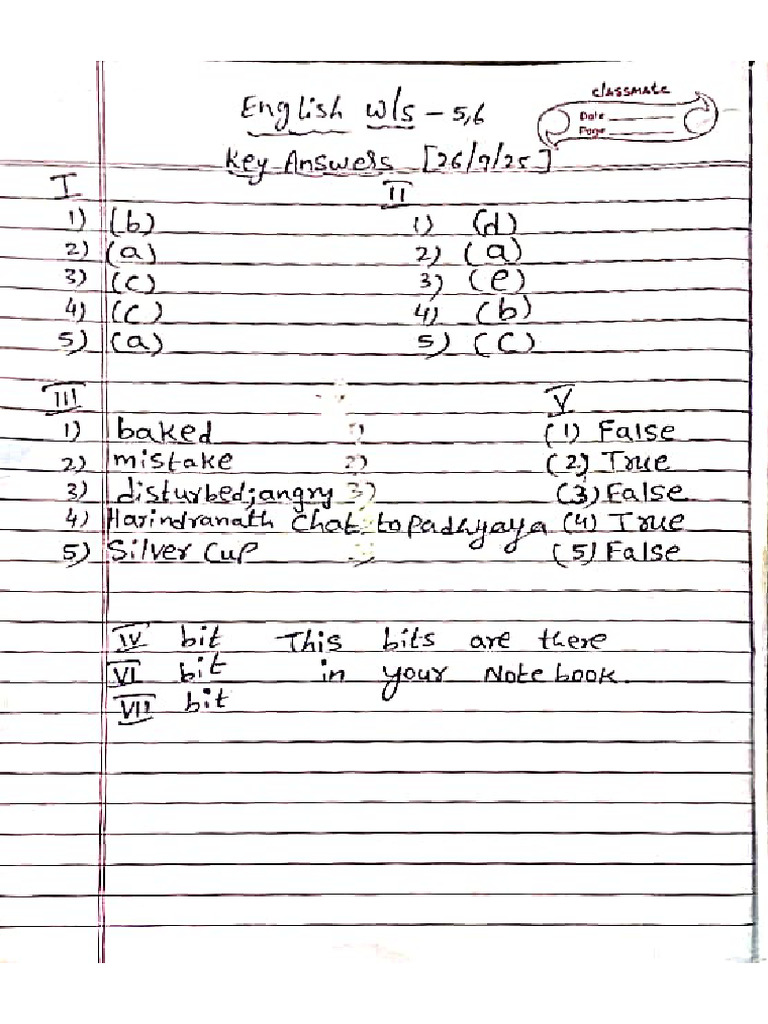 classmate
Date
Page
English w/s - 5,6
Key Answers [26/9/25]
I
1) (b)
2) (a)
3) (c)
4) (c)
5) (a)
II
1) (d)
2) (a)
3) (e)
4) (b)
5) (c)
III
1) baked
2) mistake
3) disturbed; angry
4) Harindranath Chattopadhyaya
5) Silver Cup
V
(1) False
(2) True
(3) False
(4) True
(5) False
IV bit This bits are there
VI bit in your Note book.
VII bit